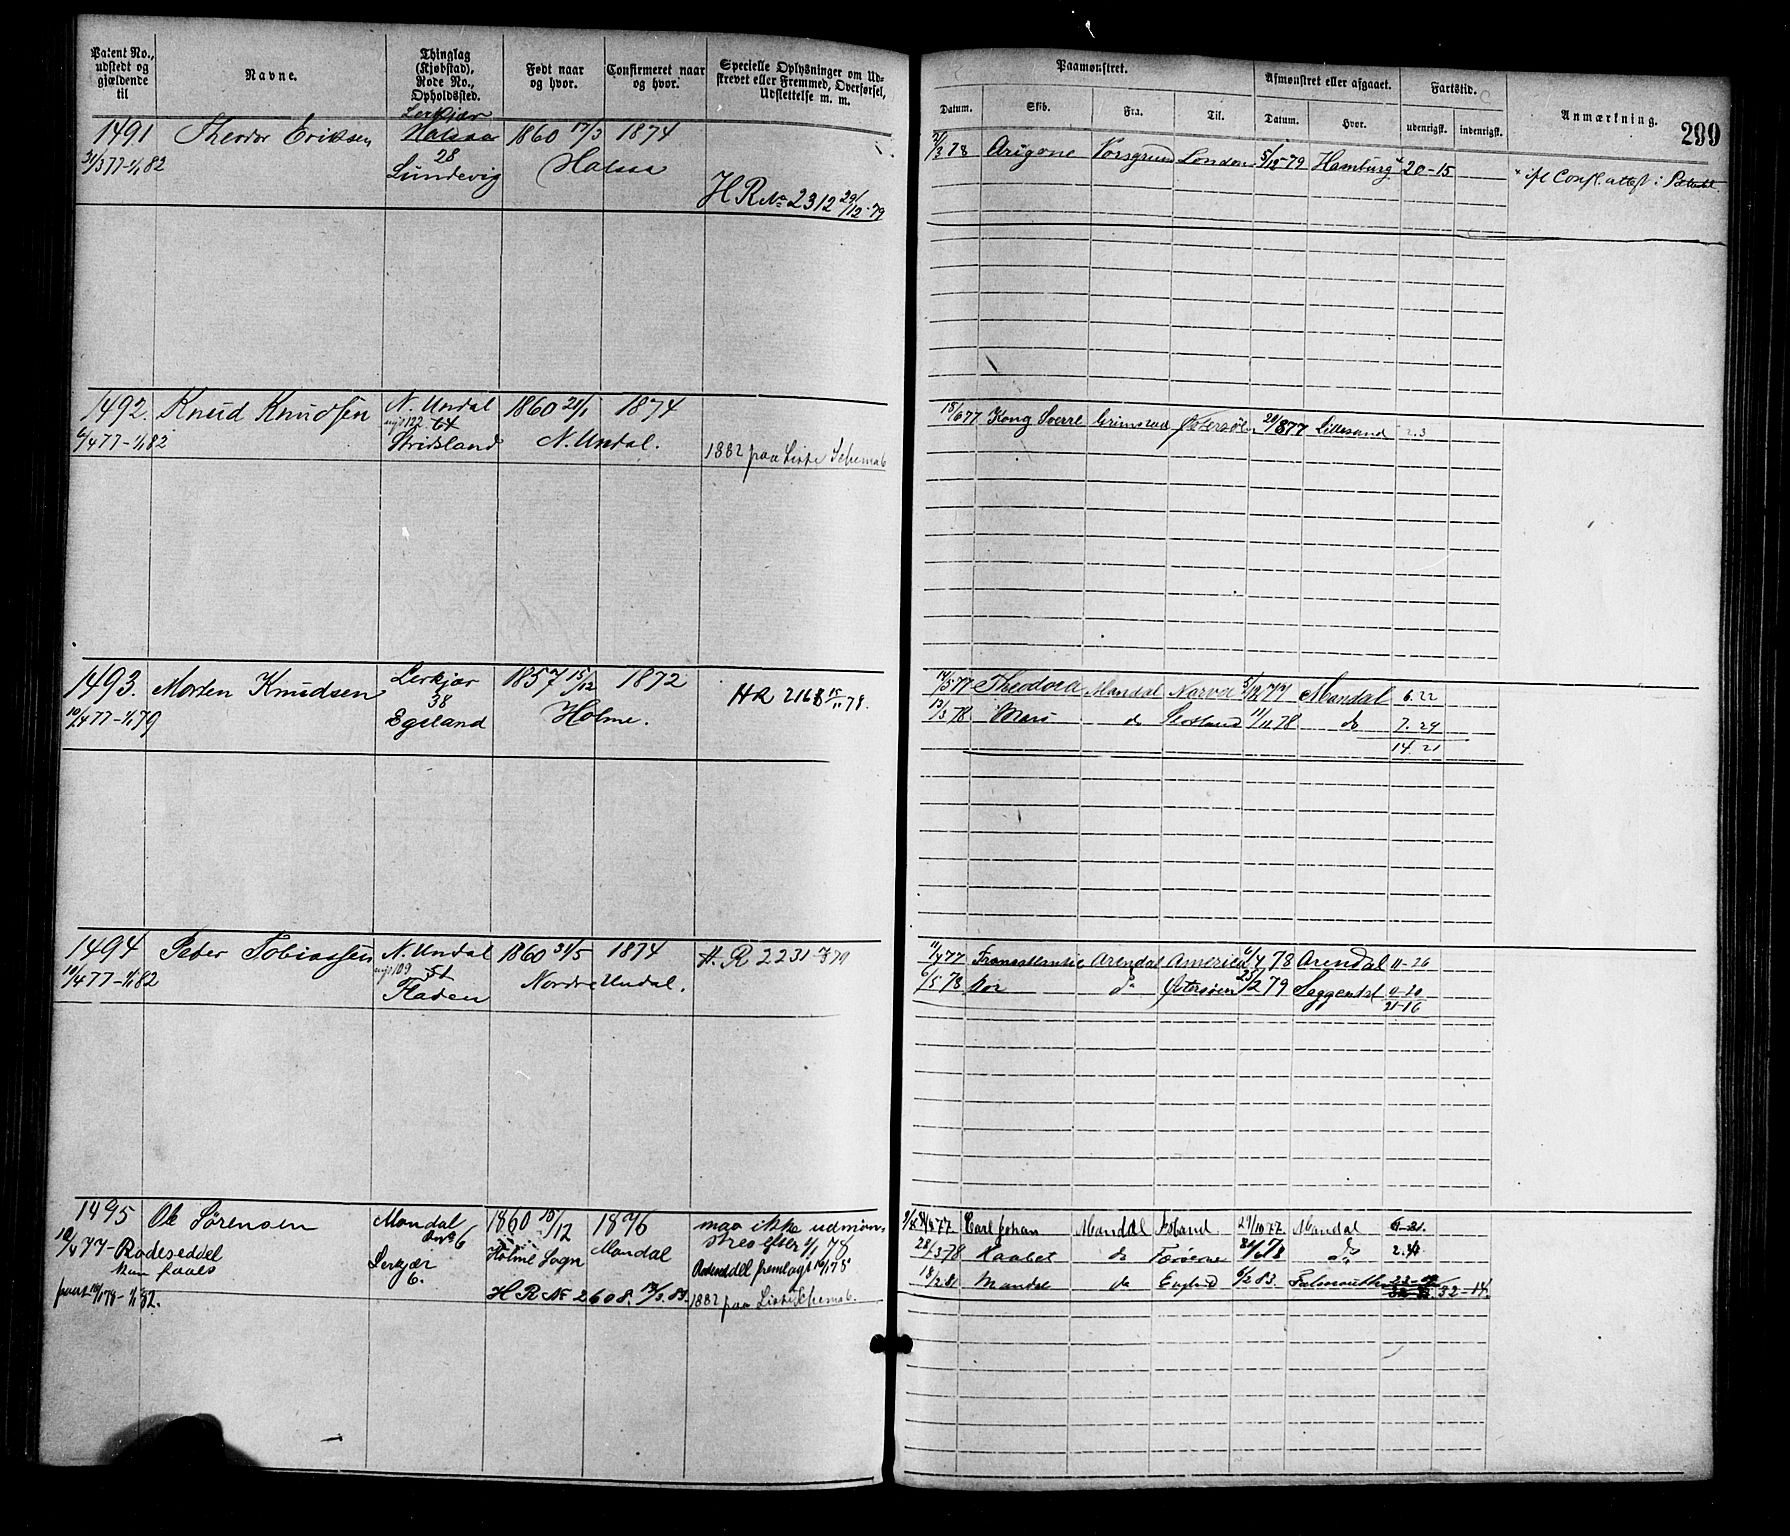 Patent No., udstedt og gjældende til
Navne.
Thinglag (Kjøbstad), Rode No., Opholdssted.
Født naar og hvor.
Confirmeret naar og hvor.
Specielle Oplysninger om Udskrevet eller Fremmed, Overførsel, Udslettelse m. m.
Paamønstret.
Afmønstret eller afgaaet.
Fartstid.
Anmærkning.
299
Datum.
Skib.
Fra.
Til.
Datum.
Hvor.
udenrigsk.
indenrigsk.
Lerkjær
1491 Theodor Eriksen Halsaa 1860 17/3 1874
31/3 77-1/1 82 28 Halsaa
Lundevig
H R No 2312 29/12-79
Arigone Porsgrund London 5/12-79 Hamburg 20-15
1492 Knud Knudsen N. Undal 1860 21/1 1874
6/4 77-1/1 82 64 N. Undal.
1882 paa Liste Schema 6
18/6 77 Kong Sverre Grimstad Østersøen 29/8 77 Lillesand 2.3
1493. Morten Knudsen Lerkjær 1857 15/12 1872
10/4 77-1/1 79 38 Holme.
Egeland
HR 2168 15/11 78.
17/5 77 Theodora Mandal Narva 5/12 77 Mandal 6.22
13/3 78 do Skotland 11/11 78 do 7.29
14.21
1494 Peder Tobiassen N. Undal 1860 31/5 1874 H. R 2231
10/4 77-1/1 82 51 Nordre Undal.
Fladen
11/4 77 Transatlantic Arendal America 6/4 78 Arendal 11-26
6/5 78 do Østersøen 25/2 79
21-16
1495 Ole Sørensen Mandal 1860 13/12 1876 maa ikke udmøn-
stres efter 1/1 78
10/4 77- Rodeseddel Holme Sogn Mandal
kun paals Lerkjær
6.
Rodeseddel fremlagt
1/1 82. H R No 2608. 1882 paa Liste Schema 6.
Carl Johan Mandal 27/10 77 Mandal
28/3 78 Haabet do Færøerne do
18/2 80 Mandal do England 6/2 83. Falmouth
32-14